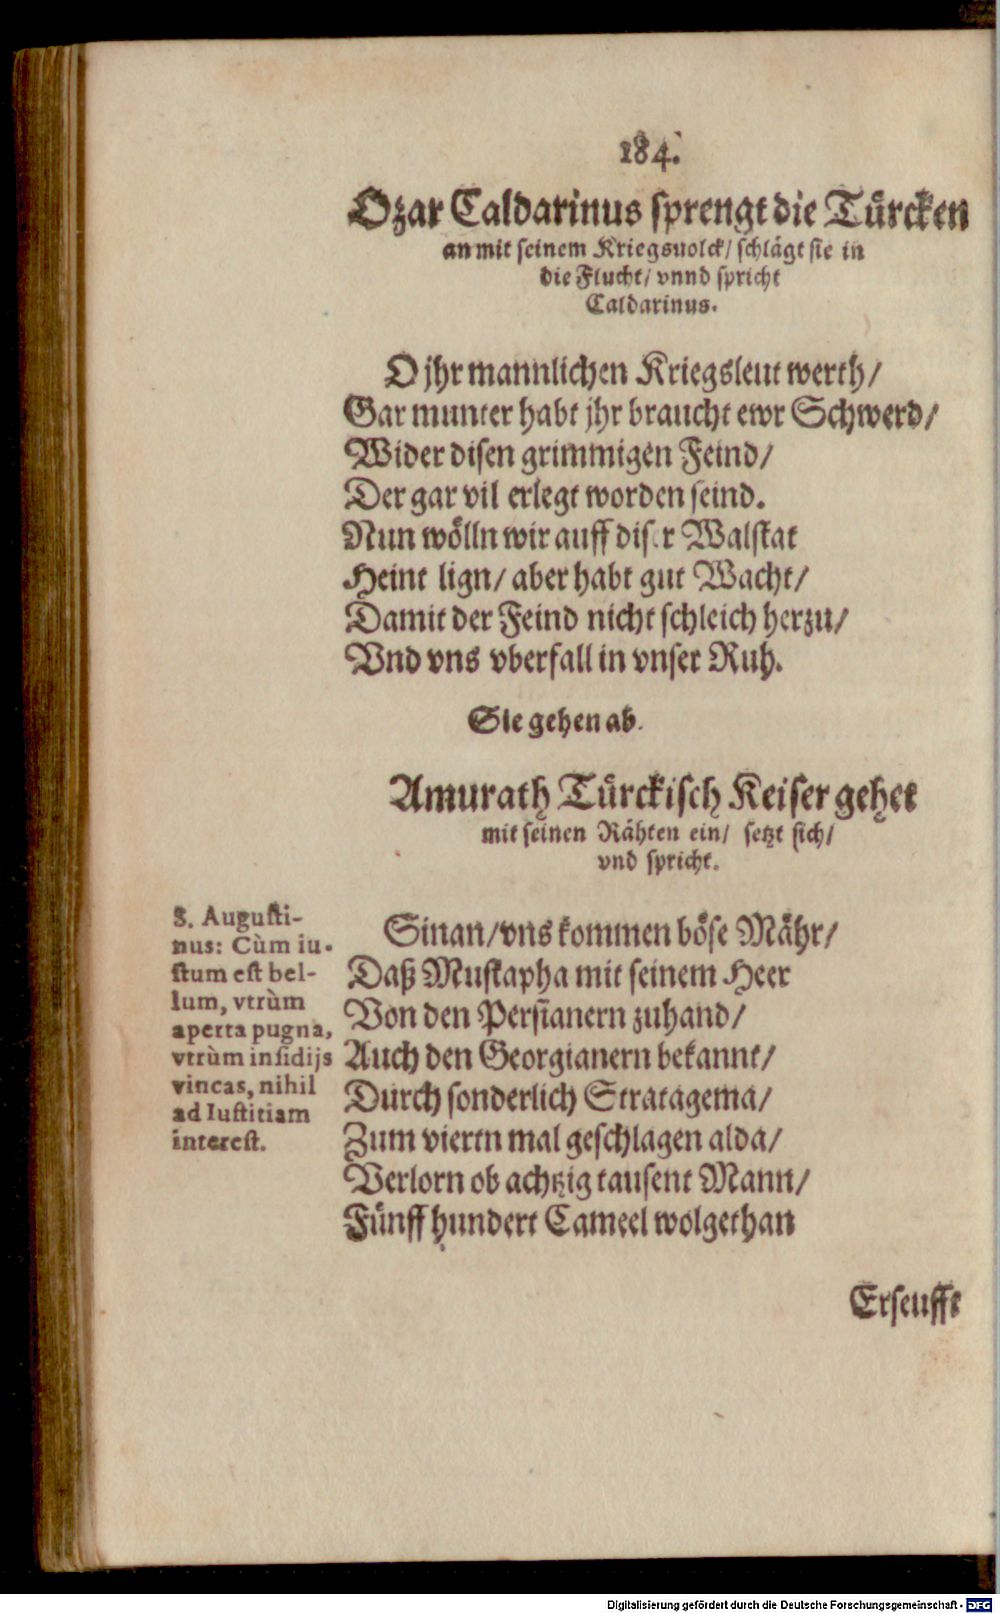 184.
Ozar Caldarinus sprengt die Türcken
an mit seinem Kriegsuolck/ schlägt sie in
die Flucht/ vnnd spricht
Caldarinus.
O jhr mannlichen Kriegsleut werth/
Gar munter habt jhr braucht ewr Schwerd/
Wider disen grimmigen Feind/
Der gar vil erlegt worden seind.
Nun wölln wir auff diser Walstat
Heint lign/ aber habt gut Wacht/
Damit der Feind nicht schleich herzu/
Vnd vns vberfall in vnser Ruh.
Sie gehen ab.
Amurath Türckisch Keiser gehet
mit seinen Rähten ein/ setzt sich/
vnd spricht.
S. Augusti-
nus: Cùm iu-
stum est bel-
lum, vtrùm
aperta pugna,
vtrùm insidijs
vincas, nihil
ad Iustitiam
interest.
Sinan/ vns kommen böse Mähr/
Daß Mustapha mit seinem Heer
Von den Persianern zuhand/
Auch den Georgianern bekannt/
Durch sonderlich Stratagema/
Zum viertn mal geschlagen alda/
Verlorn ob achtzig tausent Mann/
Fünff hundert Cameel wolgethan
Erseufft
Digitalisierung gefördert durch die Deutsche Forschungsgemeinschaft - DFG